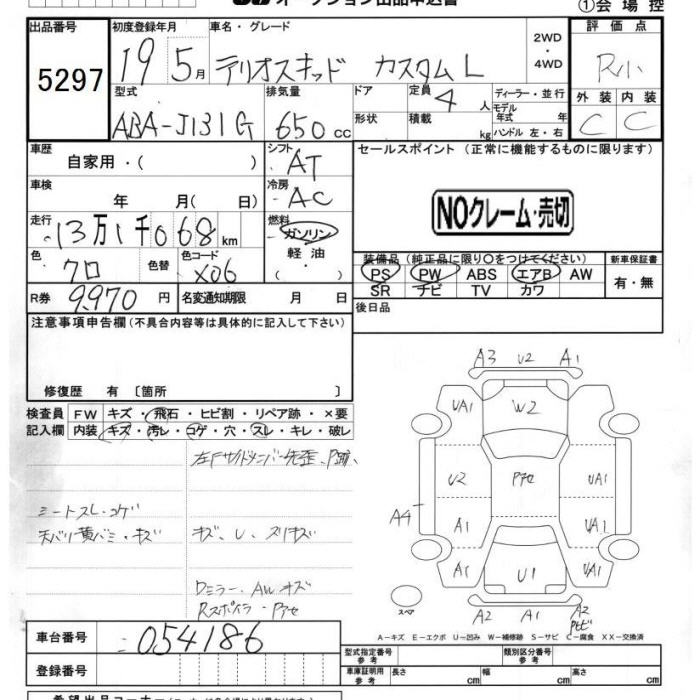 ①会場控
オークション出品申込書
出品番号
5297
初度登録年月
19 5月
車名・グレード
テリオスキッド カスタムL
2WD
・
4WD
評価点
R小
型式
ABA-J131G
排気量
650 cc
ドア
形状
定員
4 人
積載
kg
ディーラー・並行
モデル
年式 年
ハンドル 左・右
外装
内装
C
C
車歴
自家用・( )
シフト
AT
セールスポイント (正常に機能するものに限ります)
NOクレーム・売切
車検
年 月( 日)
冷房
AC
走行
13万1千068 km
燃料
ガソリン
軽油
・( )
色
クロ
色替
色コード
X06
装備品 (純正品に限り○をつけてください)
PS PW ABS エアB AW
SR ナビ TV カワ
新車保証書
有・無
R券
9,970 円
名変通知期限
月 日
後日品
注意事項申告欄 (不具合内容等は具体的に記入して下さい)
修復歴 有 〔箇所 〕
検査員
記入欄
FW キズ・飛石・ヒビ割・リペア跡・×要
内装 キズ・汚レ・コゲ・穴・スレ・キレ・破レ
シートスレ・コゲ
天バリ黄バミ・キズ
キズ、U、スリキズ
Dミラー、AWキズ
Rスポイラ-Pアセ
A3 U2 A1
UA1 W2
U2 Pアセ UA1
A4
A1 UA1
A1 U1 UA1
A2 A1 A2
スペア
A-キズ E-エクボ U-凹み W-補修跡 S-サビ C-腐食 XX-交換済
車台番号
054186
登録番号
型式指定番号
参考
類別区分番号
参考
車庫証明用
参考
長さ cm
幅 cm
高さ cm